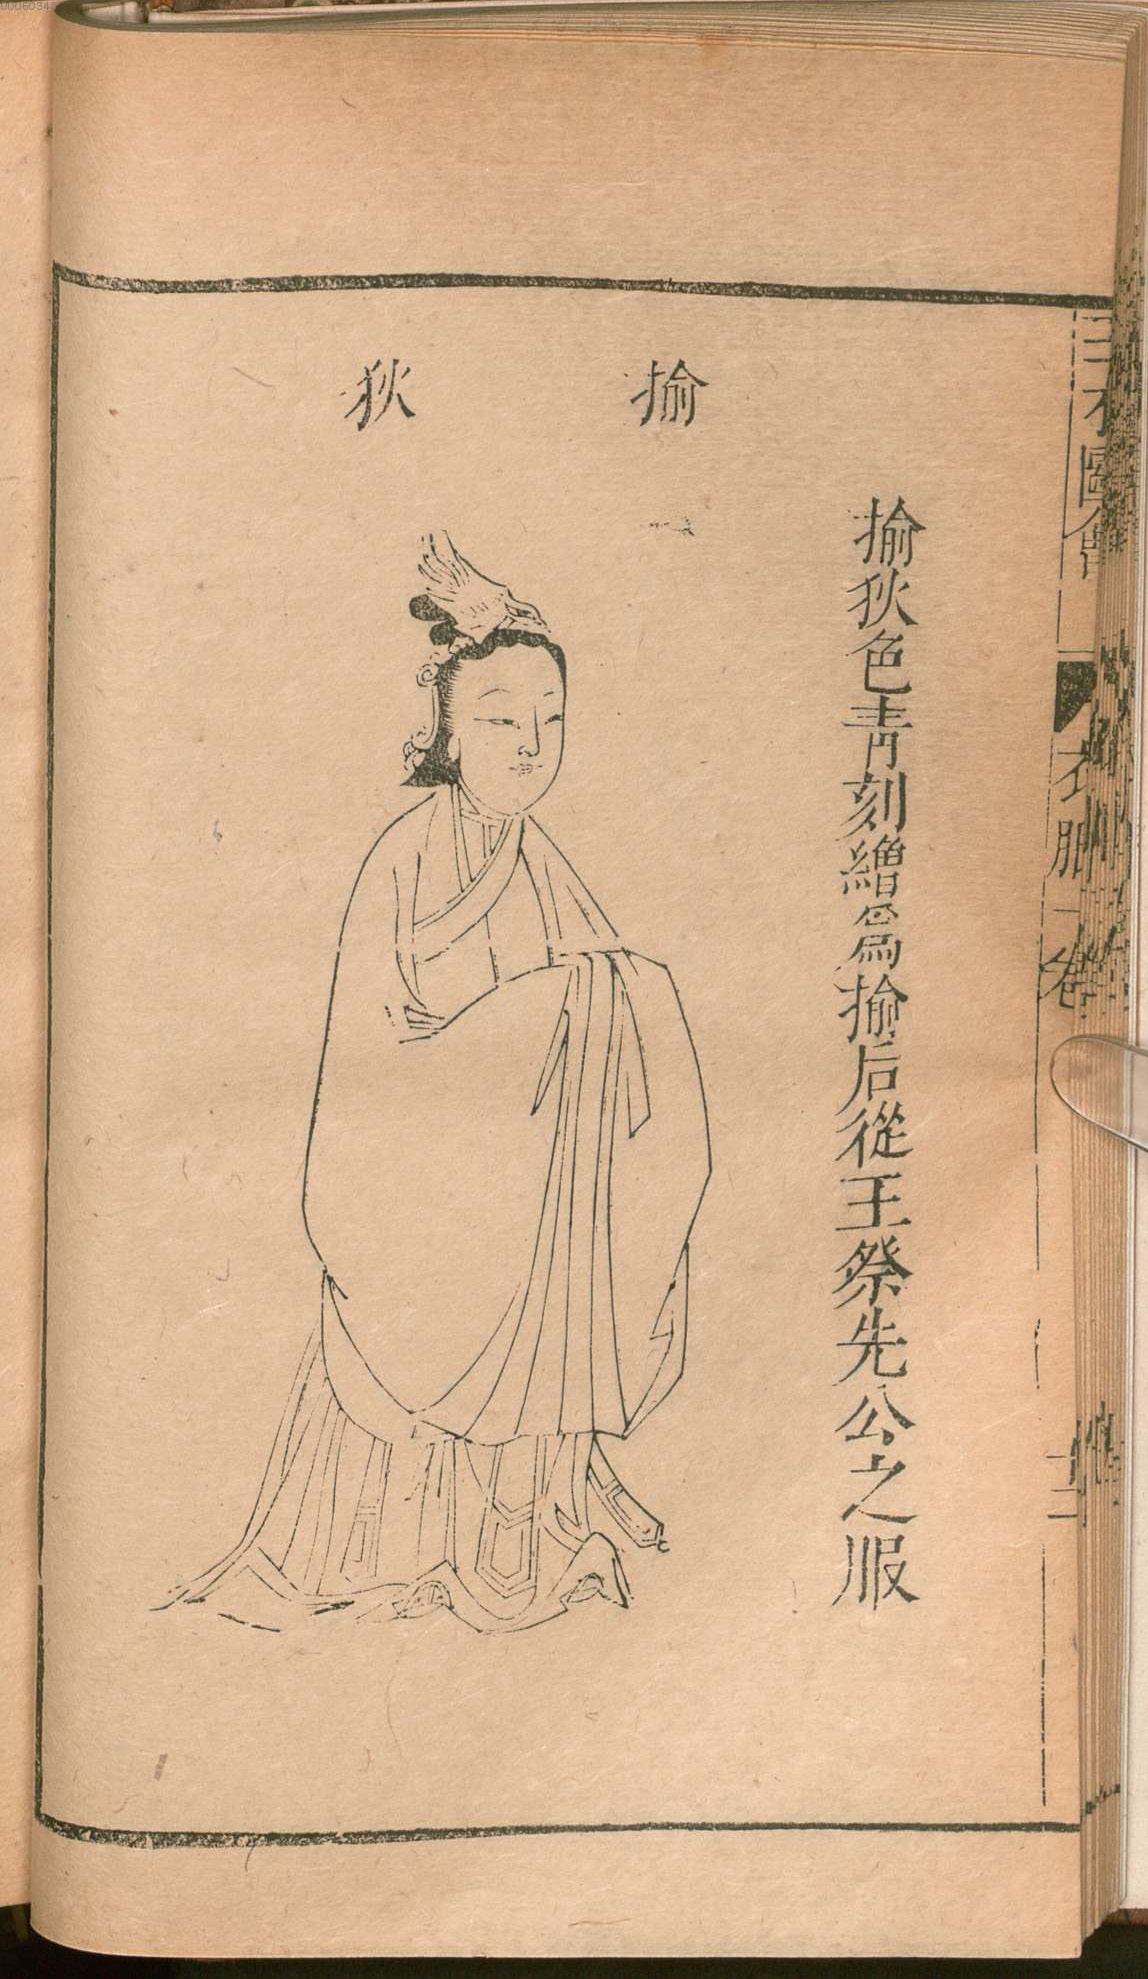 揄狄
揄狄色青刻繒爲揄后從王祭先公之服
三才圖會
衣服一卷
十二